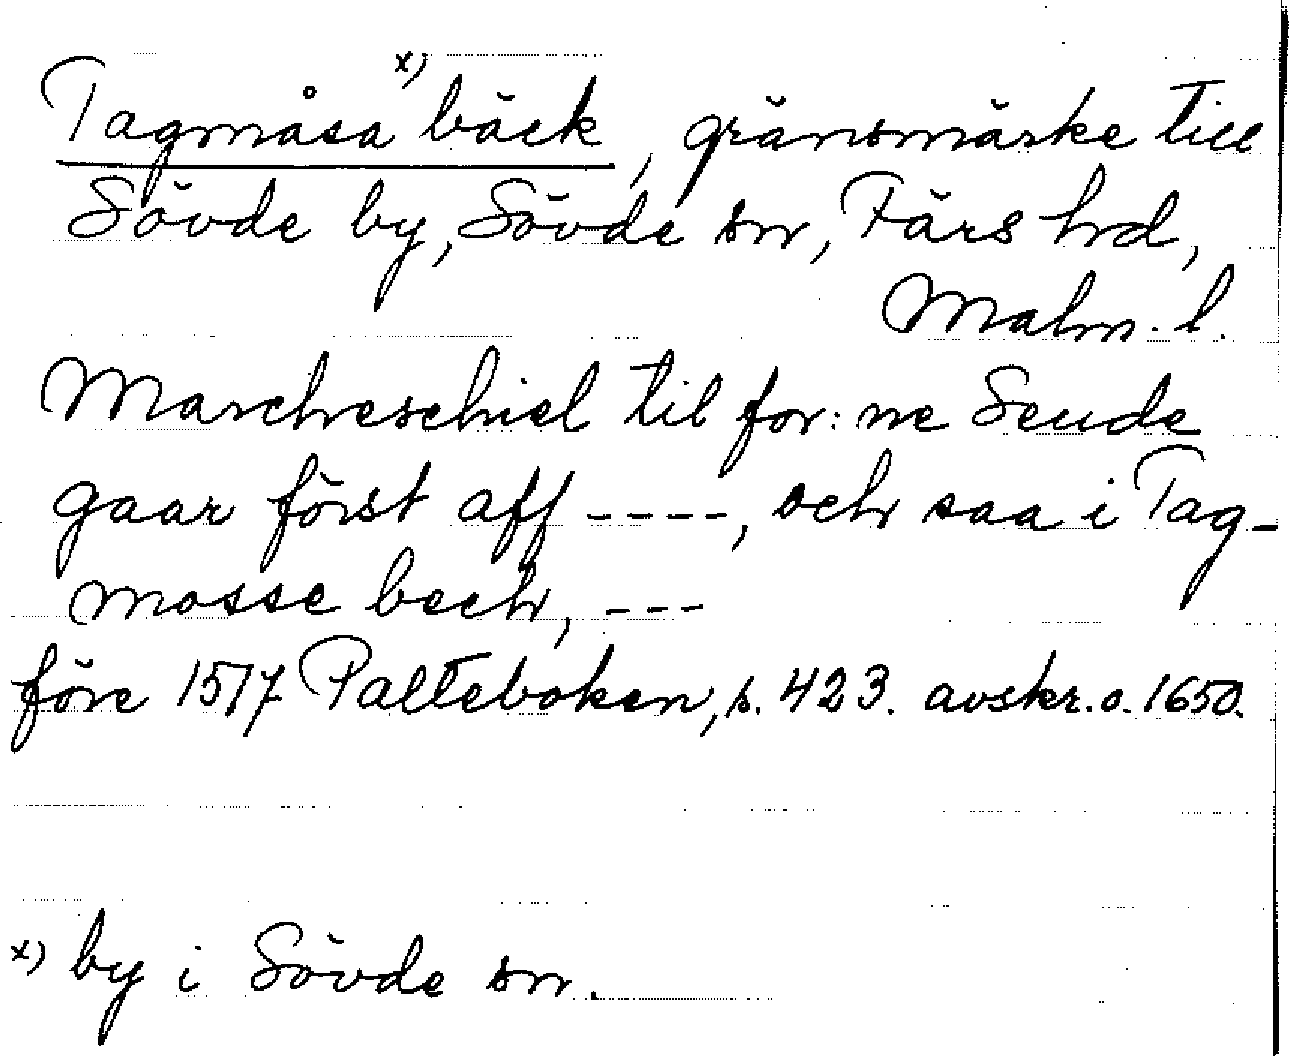 Tagmåsa x) bäck, gränsmärke till
Sövde by, Sövde sn, Färs hd,
Malm. l.
Marcheschiel til for: ne Seude
gaar först aff ----, och saa i Tag-
mosse bech, ---
före 1517 Palteboken, s. 423. avskr. o. 1650.
x) by i Sövde sn.